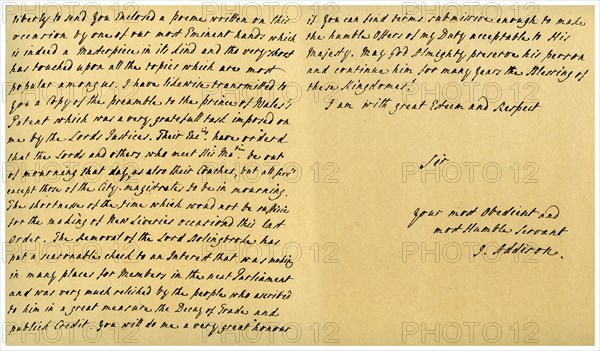 liberty to send You Enclosed a poeme written on this
occasion by one of our most Eminent hands which
is indeed a Masterpiece in its kind and tho very short
has touched upon all the topics which are most
popular among us. I have likewise transmitted to
you a Copy of the preamble to the prince of Wales's
Patent which was a very gratefull task imposed on
me by the Lords Justices. Their Exc^ies. have order'd
that the Lords and others who meet His Ma^tie. be out
of mourning that day, as also their Coaches, but all
except those of the City-magistrates to be in mourning.
The shortness of the time which would not be
for the making of New Liveries occasiond this last
Order. The Removal of the Lord Bolingbroke has
put a seasonable check to an Interest that was making
in many places for Members in the next Parliament
and was very much relished by the people who ascribd
to him in a great measure the Decay of Trade and
publick Credit. You will do me a very great honour
if You can find terms submissive enough to make
the humble Offers of my Duty acceptable to His
Majesty. May God Almighty preserve his person
and continue him for many years the Blessing of
these Kingdomes.
I am with great Esteem and Respect
Sir
Your most Obedient and
most Humble Servant
J. Addison.
PHOTO12 PHOTO12 PHOTO12 PHOTO12